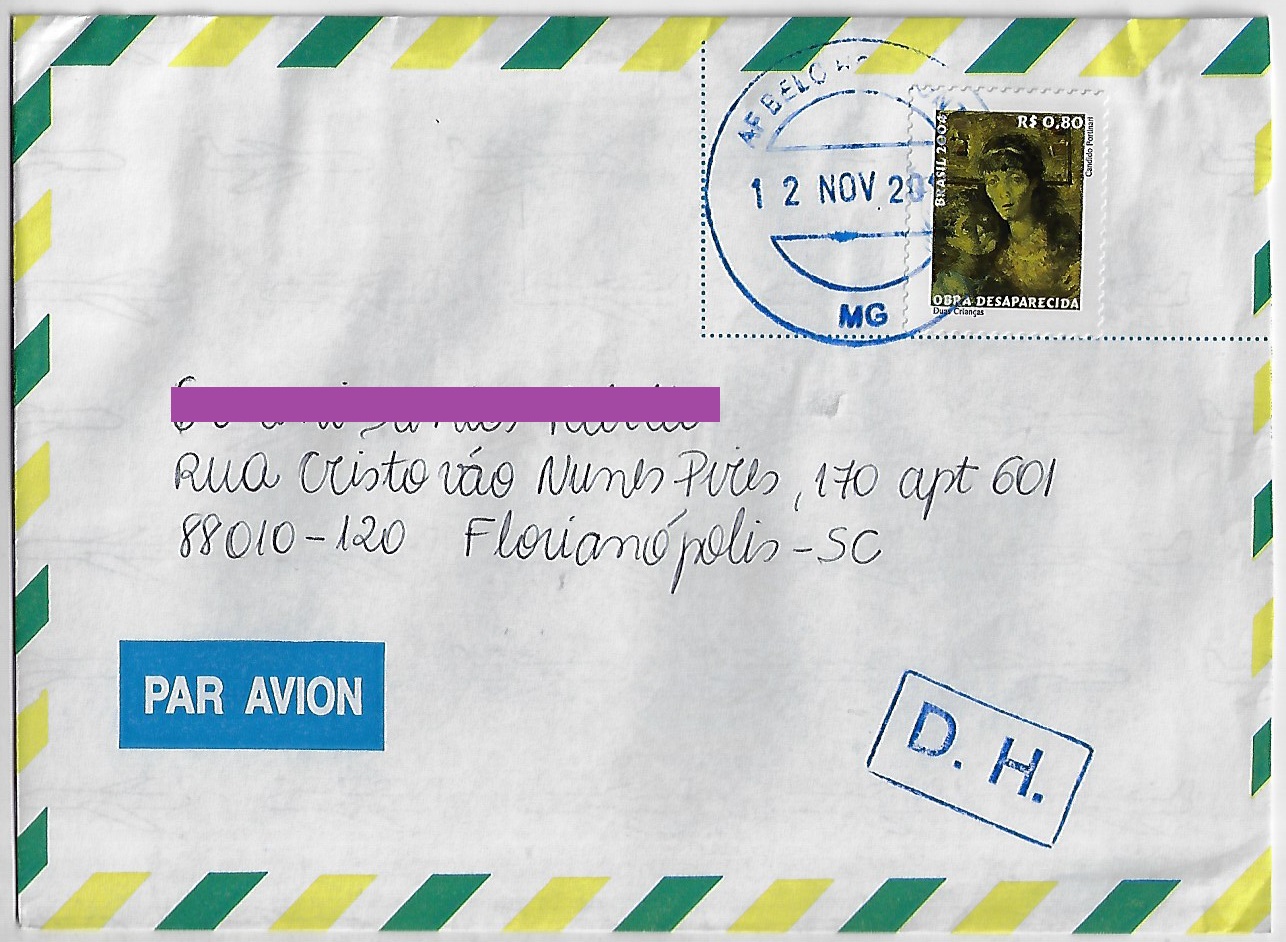 AF BELO
12 NOV 20
MG
R$ 0,80
BRASIL 2004
Candido Portinari
OBRA DESAPARECIDA
Duas Crianças
Rua Cristovão Nunes Pires, 170 apt 601
88010-120 Florianópolis-SC
PAR AVION
D. H.